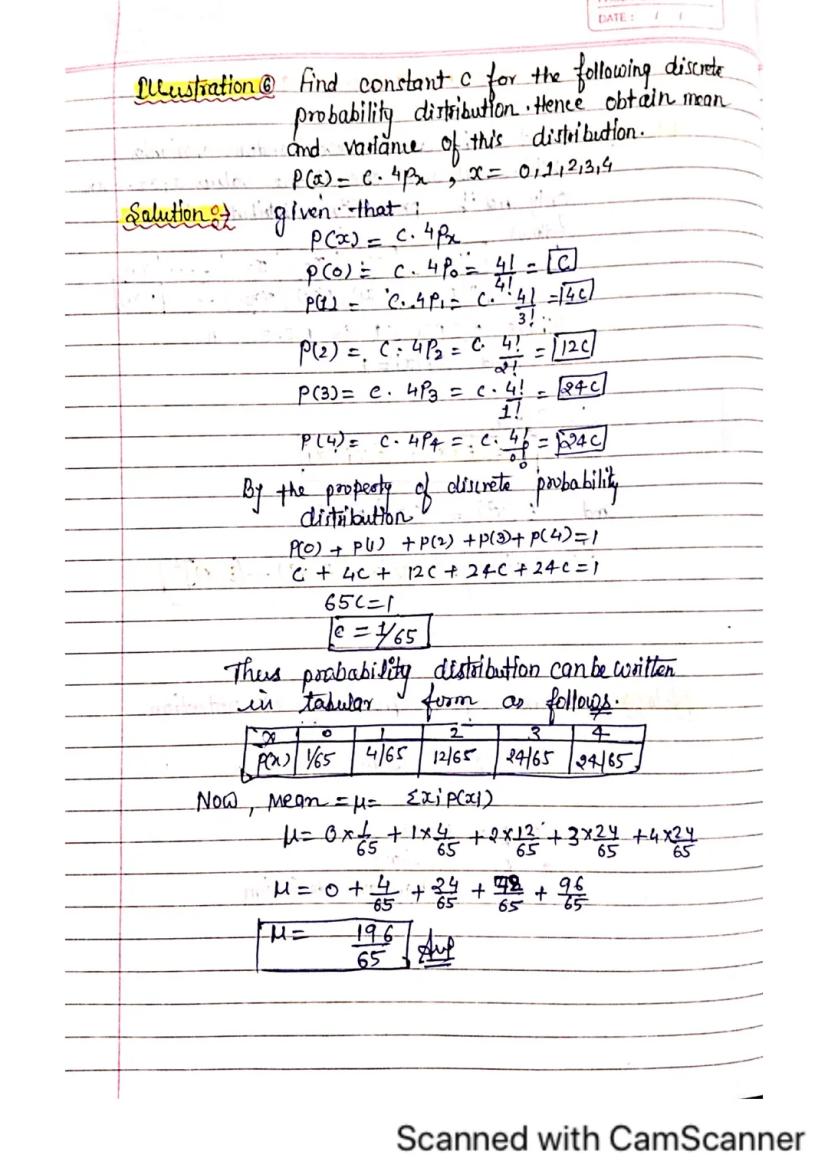 DATE: / /
Illustration ⑥ Find constant c for the following discrete
probability distribution. Hence obtain mean
and variance of this distribution.
P(x) = c. 4Px , x = 0,1,2,3,4
Solution :→ given that :
P(x) = C. 4Px
P(0) = C. 4P0 = 4!/4! = C
P(1) = C. 4P1 = C. 4!/3! = 4C
P(2) = C. 4P2 = C. 4!/2! = 12C
P(3) = C. 4P3 = C. 4!/1! = 24C
P(4) = C. 4P4 = C. 4!/0! = 24C
By the property of discrete probability
distribution
P(0) + P(1) + P(2) + P(3) + P(4) = 1
C + 4C + 12C + 24C + 24C = 1
65C = 1
C = 1/65
Thus probability distribution can be written
in tabular form as follows.
x 0 1 2 3 4
P(x) 1/65 4/65 12/65 24/65 24/65
Now, Mean = μ = Σxi P(xi)
μ = 0 x 1/65 + 1 x 4/65 + 2 x 12/65 + 3 x 24/65 + 4 x 24/65
μ = 0 + 4/65 + 24/65 + 72/65 + 96/65
μ = 196/65 Ans
Scanned with CamScanner